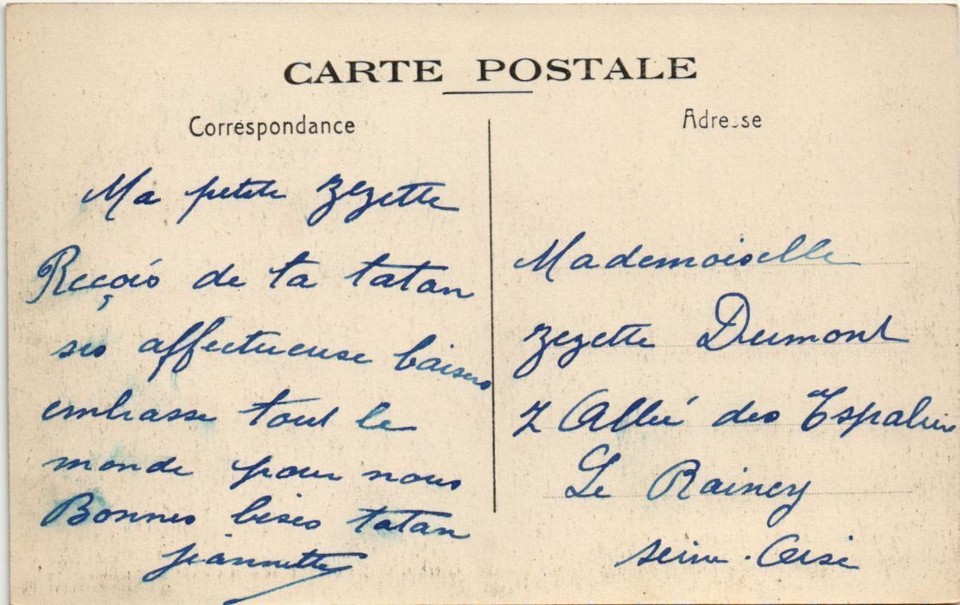 CARTE POSTALE
Correspondance
Ma petite Zezette
Reçois de ta tatan
ses affectueuse baisers
embrasse tout le
monde pour nous
Bonnes bises tatan
jeannette
Adresse
Mademoiselle
Zezette Dumont
Allée des Espaliers
Le Raincy
Seine-Oise